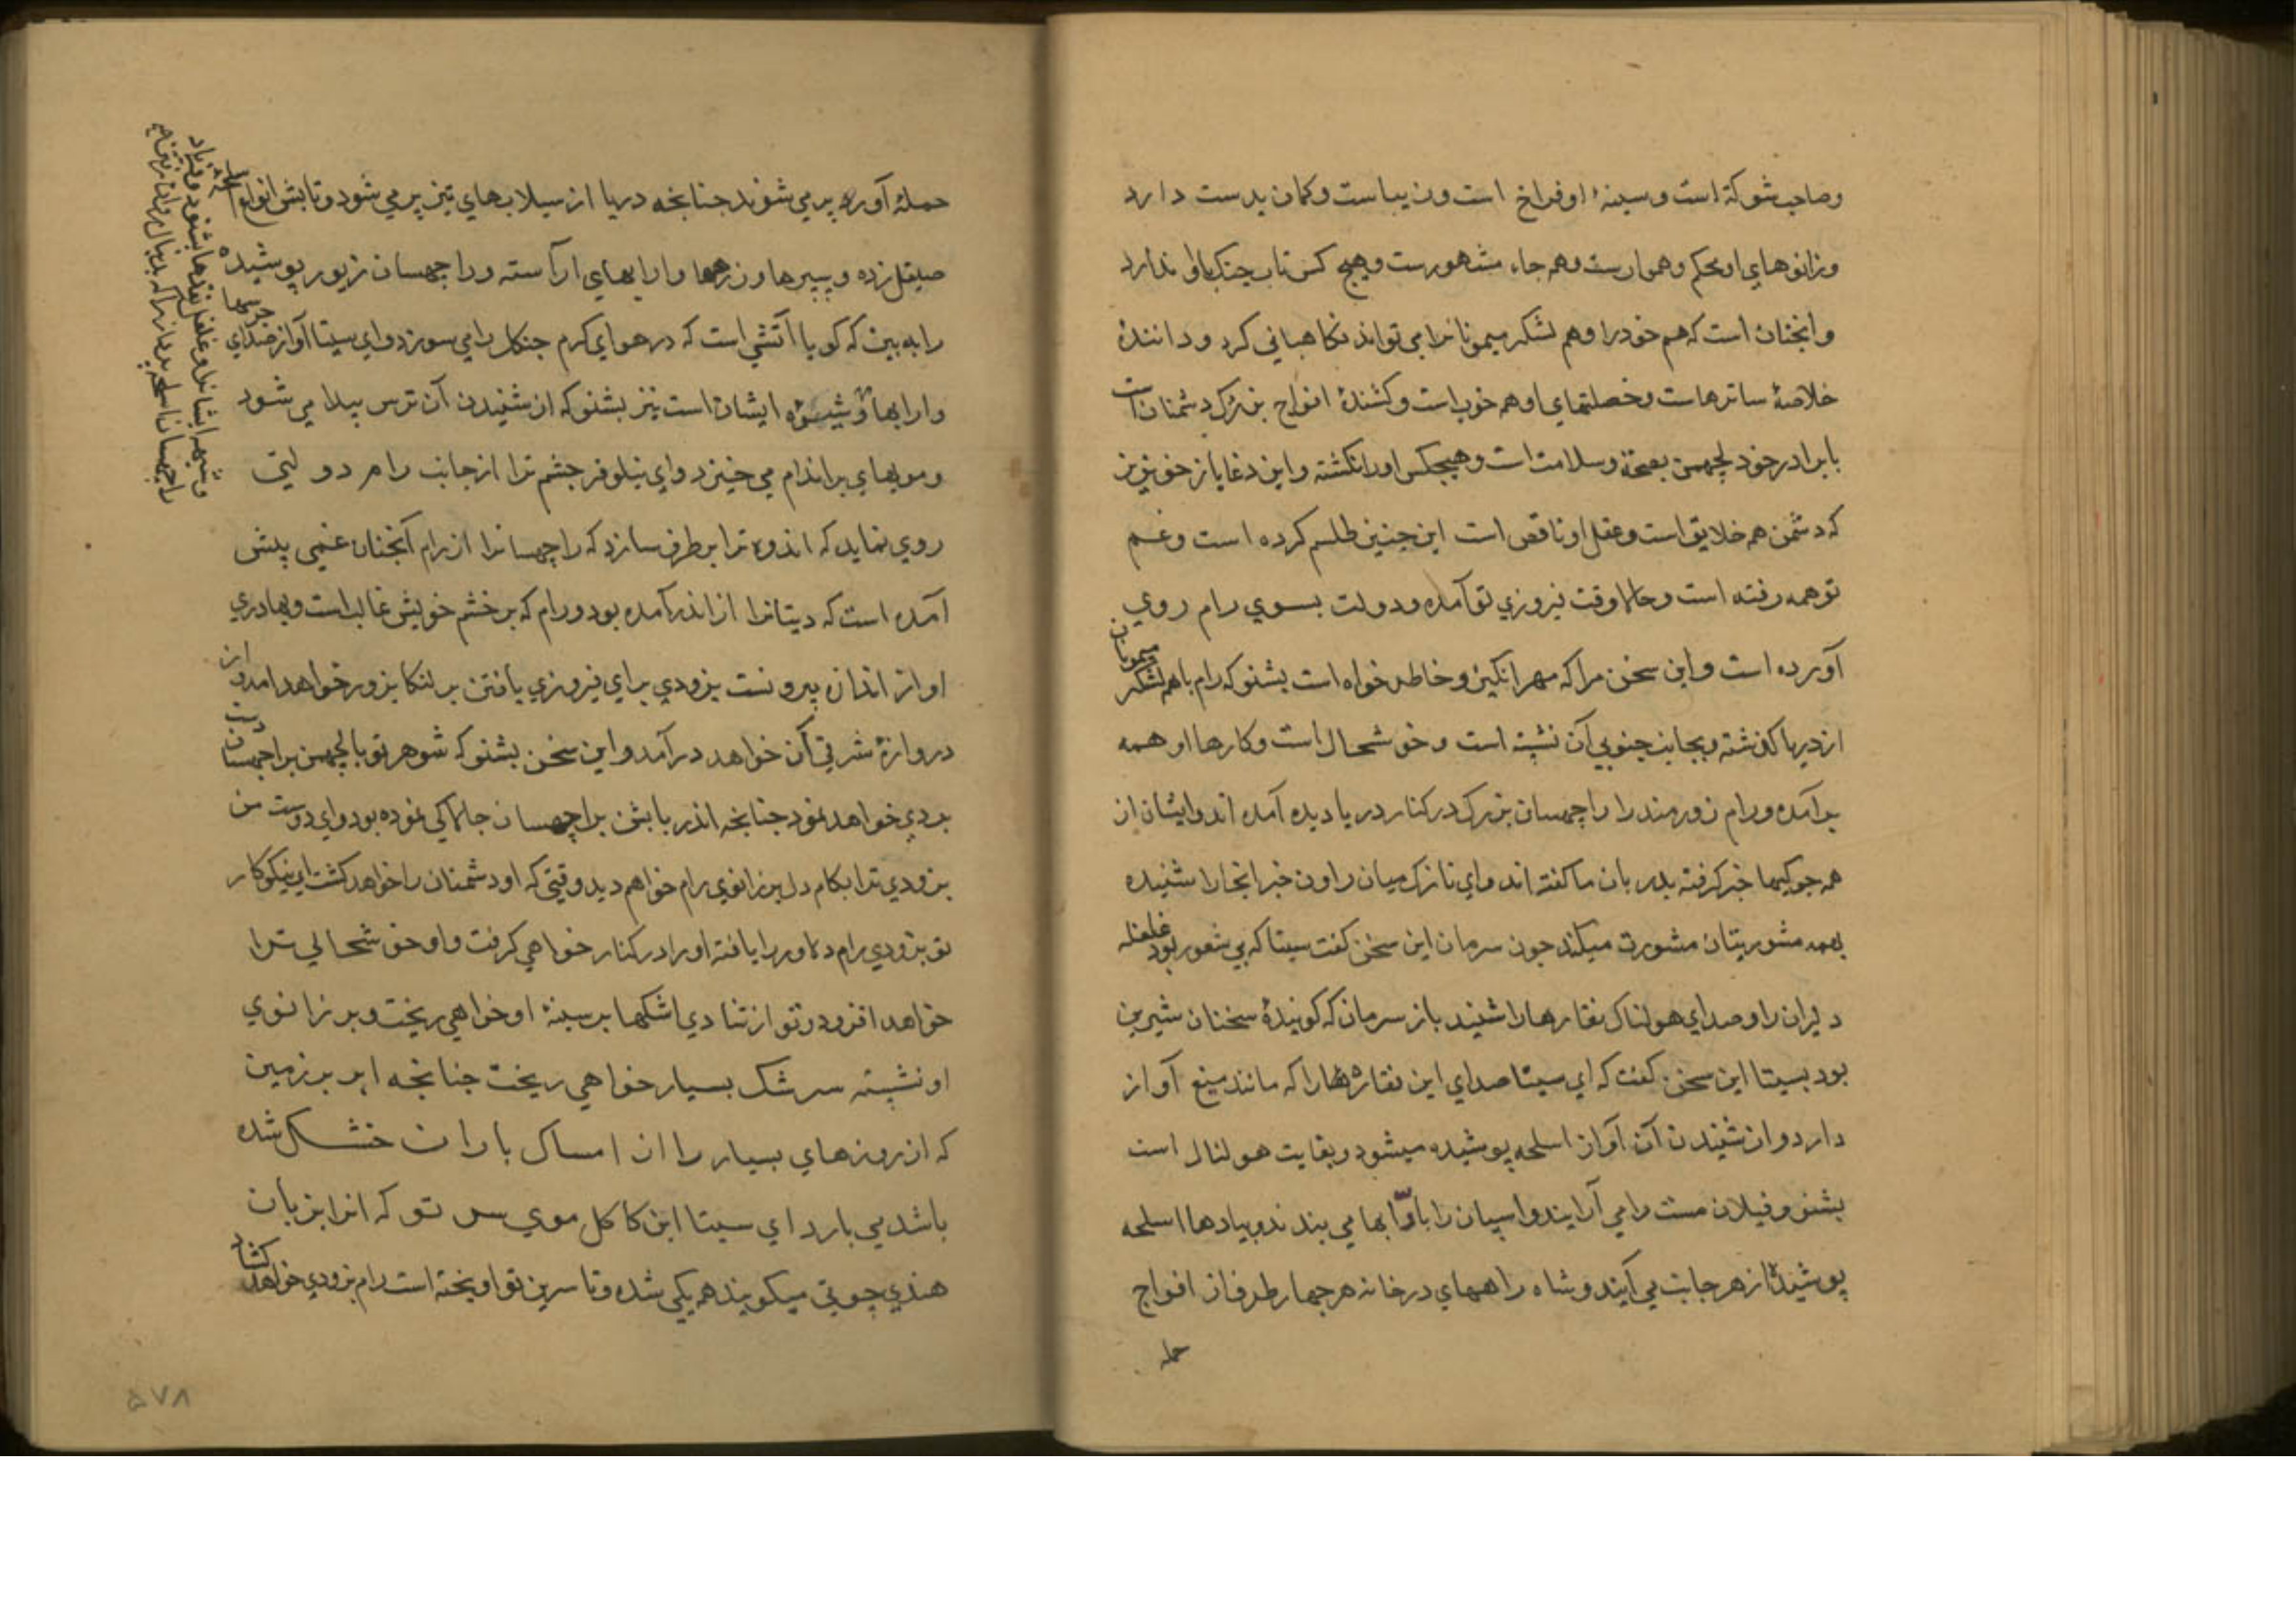 وصاحب شوکة است و سینهٔ او فراخ است و زیباست و کمان بدست دارد
و زانوهای او محکم و هموارست و همه جا مشهورست و هیچ کس تاب جنک باو ندارد
و انجنان است که هم خود را و هم لشکر میمونانرا می تواند نکاهبانی کرد و دانندهٔ
خلاصهٔ ساترهاست و خصلتهای او هم خوب است و کشندهٔ افواج بزرک دشمنان است
با برادر خود لچهمن بصحة و سلامت است و هیچکس او را نکشته و این دغاباز خونریز
که دشمن همه خلایق است و عقل او ناقص است این چنین طلسم کرده است و غم
تو همه رفته است و حالا وقت فیروزی تو آمده و دولت بسوی رام روی
آورده است و این سخن مرا که مهر انکیز و خاطر خواه است بشنو که رام با همه لشکر میمونان
از دریا کذشته و بجانب جنوبی آن نشسته است و خوشحال است و کارها او همه
برآمده و رام زورمند را راچهسان بزرک در کنار دریا دیده آمده اند و ایشان از
همه جوکیها خبر کرفته بدربان ما کفته اند و ای نازک میان راون خبر انجا را شنیده
بهمه مشورتیان مشورت میکند جون سرمان این سخن کفت سیتا که بی شعور بود غلغله
دلیران را و صدای هولناک نقارها را شنید باز سرمان که کویندهٔ سخنان شیرین
بود بسیتا این سخن کفت که ای سیتا صدای این نقارها را که مانند میغ آواز
دارد و از شنیدن آن آواز اسلحه پوشیده میشود و بغایت هولناک است
بشنو و فیلان مست را می آرایند و اسپان را با ارابها می بندند و پیادها اسلحه
پوشیده از هر جانب می آیند و شاه راههای درخانه هر چهار طرف از افواج
حمله
حمله آوره پر می شوند جنانجه دریا از سیلاب های تیز پر می شود و تابش انواع اسلحه
صیقل زده و سپرها و زرهها و ارابهای آراسته و راچهسان زیور پوشیده
را به بین که کویا آتشی است که در هوای کرم جنکل را می سوزد و ای سیتا آواز صدای جرسها
و ارابها و شیههٔ ایشان است نیز بشنو که از شنیدن آن ترس پیدا می شود
و مویهای بر اندام می خیزد و ای نیلوفر چشم ترا از جانب رام دولتی
روی نماید که اندوه ترا بر طرف سازد که راچهسانرا از رام آنجنان غمی پیش
آمده است که دیتانرا از اندر آمده بود و رام که بر خشم خویش غالب است و بهادری
او از اندازه بیرونست بزودی برای فیروزی یافتن بر لنکا بزور خواهد آمد و از
دروازهٔ شرقی آن خواهد درآمد و این سخن بشنو که شوهر تو با لچهمن بر راچهسان دست
بردی خواهد نمود جنانجه اندر با بشن بر راچهسان جالاکی نموده بود و ای دوست من
بزودی ترا بکام دل بر زانوی رام خواهم دید وقتی که او دشمنان را خواهد کشت ای نیکوکار
تو بزودی رام دلاور را یافته او را در کنار خواهی کرفت و او خوشحالی ترا
خواهد افزود و تو از شادی اشکها بر سینهٔ او خواهی ریخت و بر زانوی
او نشسته سرشک بسیار خواهی ریخت جنانجه ابر بر زمین
که از روزهای بسیار را از امساک باران خشک شده
باشد می بارد ای سیتا این کاکل موی سر تو که انرا بزبان
هندی چوتی میکویند همه یکی شده و تا سرین تو اویخته است رام بزودی خواهد کشاد
و شیهه ایشانرا و غلغل نقدها بشنود و فریاد
راچهسان اسلحه پوش را که بدنبال
۵۷۸